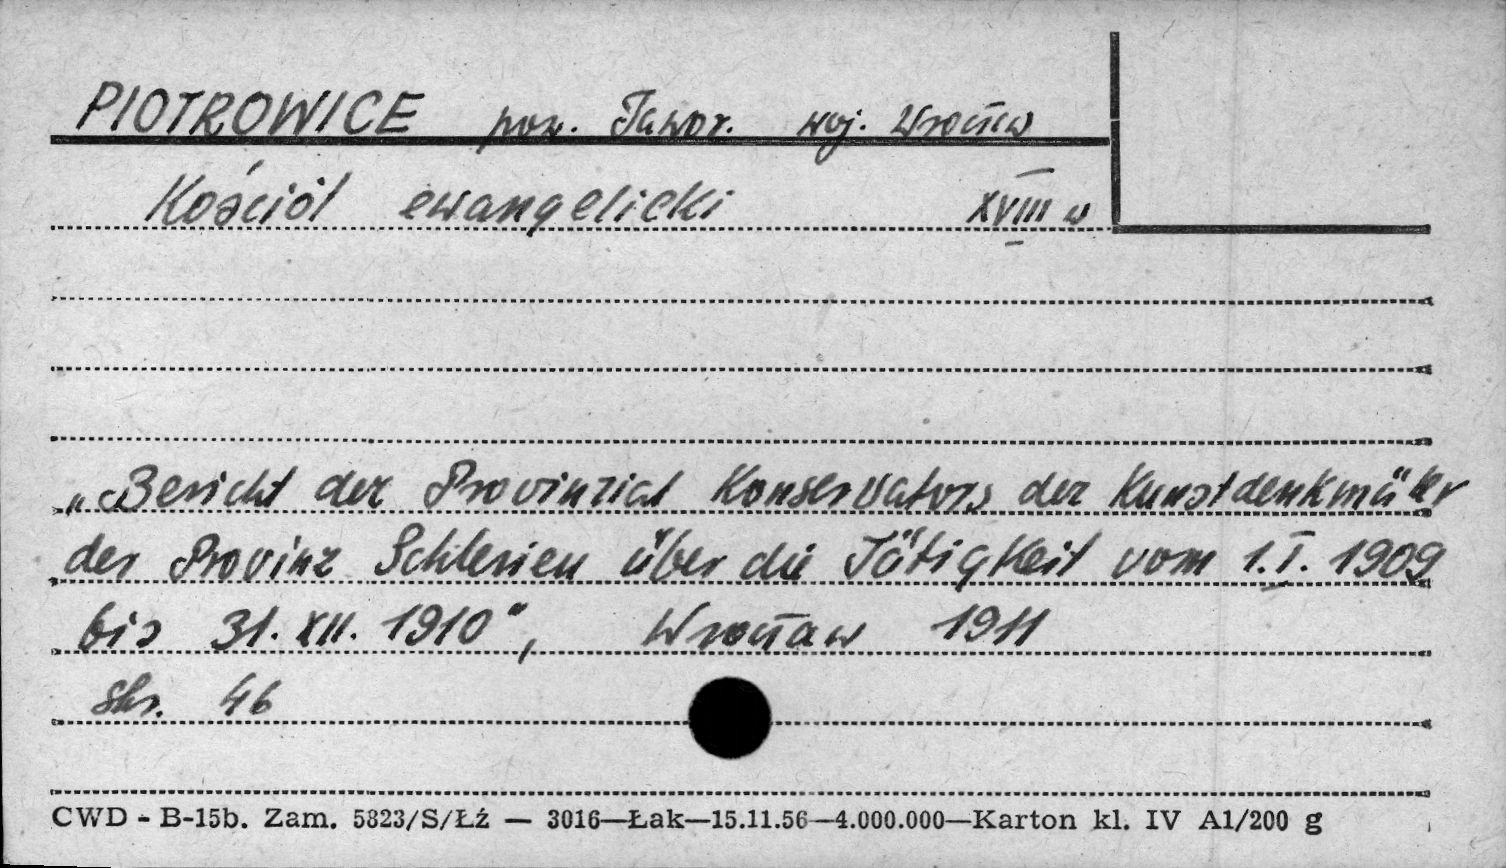 PIOTROWICE pow. Jawor. woj. Wrocław
Kościół ewangelicki XVIII w
„Bericht der Provinzial Konservators der Kunstdenkmäler
der Provinz Schlesien über die Tätigkeit vom 1.I. 1909
bis 31. XII. 1910", Wrocław 1911
str. 46
CWD - B-15b. Zam. 5823/S/Łź — 3016—Łak—15.11.56—4.000.000—Karton kl. IV A1/200 g